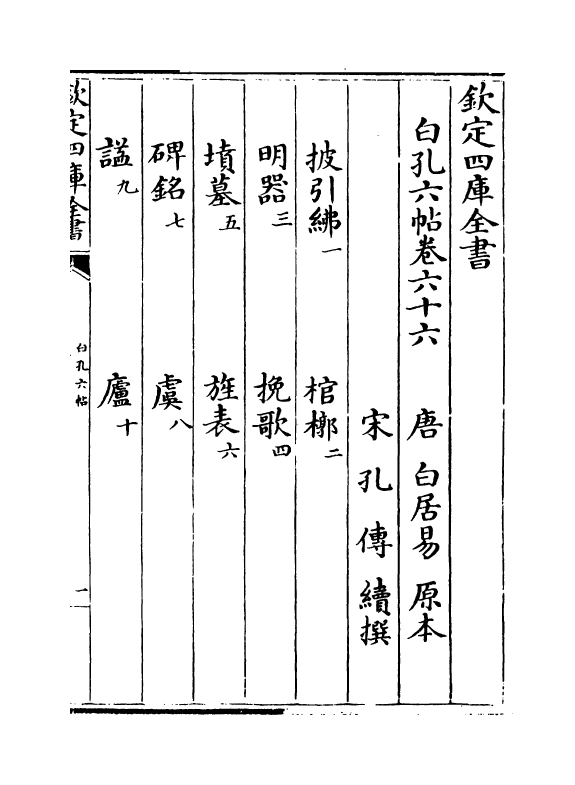 欽定四庫全書
白孔六帖卷六十六　唐　白居易　原本
宋　孔　傳　續撰
披引紼一　棺槨二
明器三　挽歌四
墳墓五　旌表六
碑銘七　虞八
諡九　廬十
欽定四庫全書　白孔六帖　一